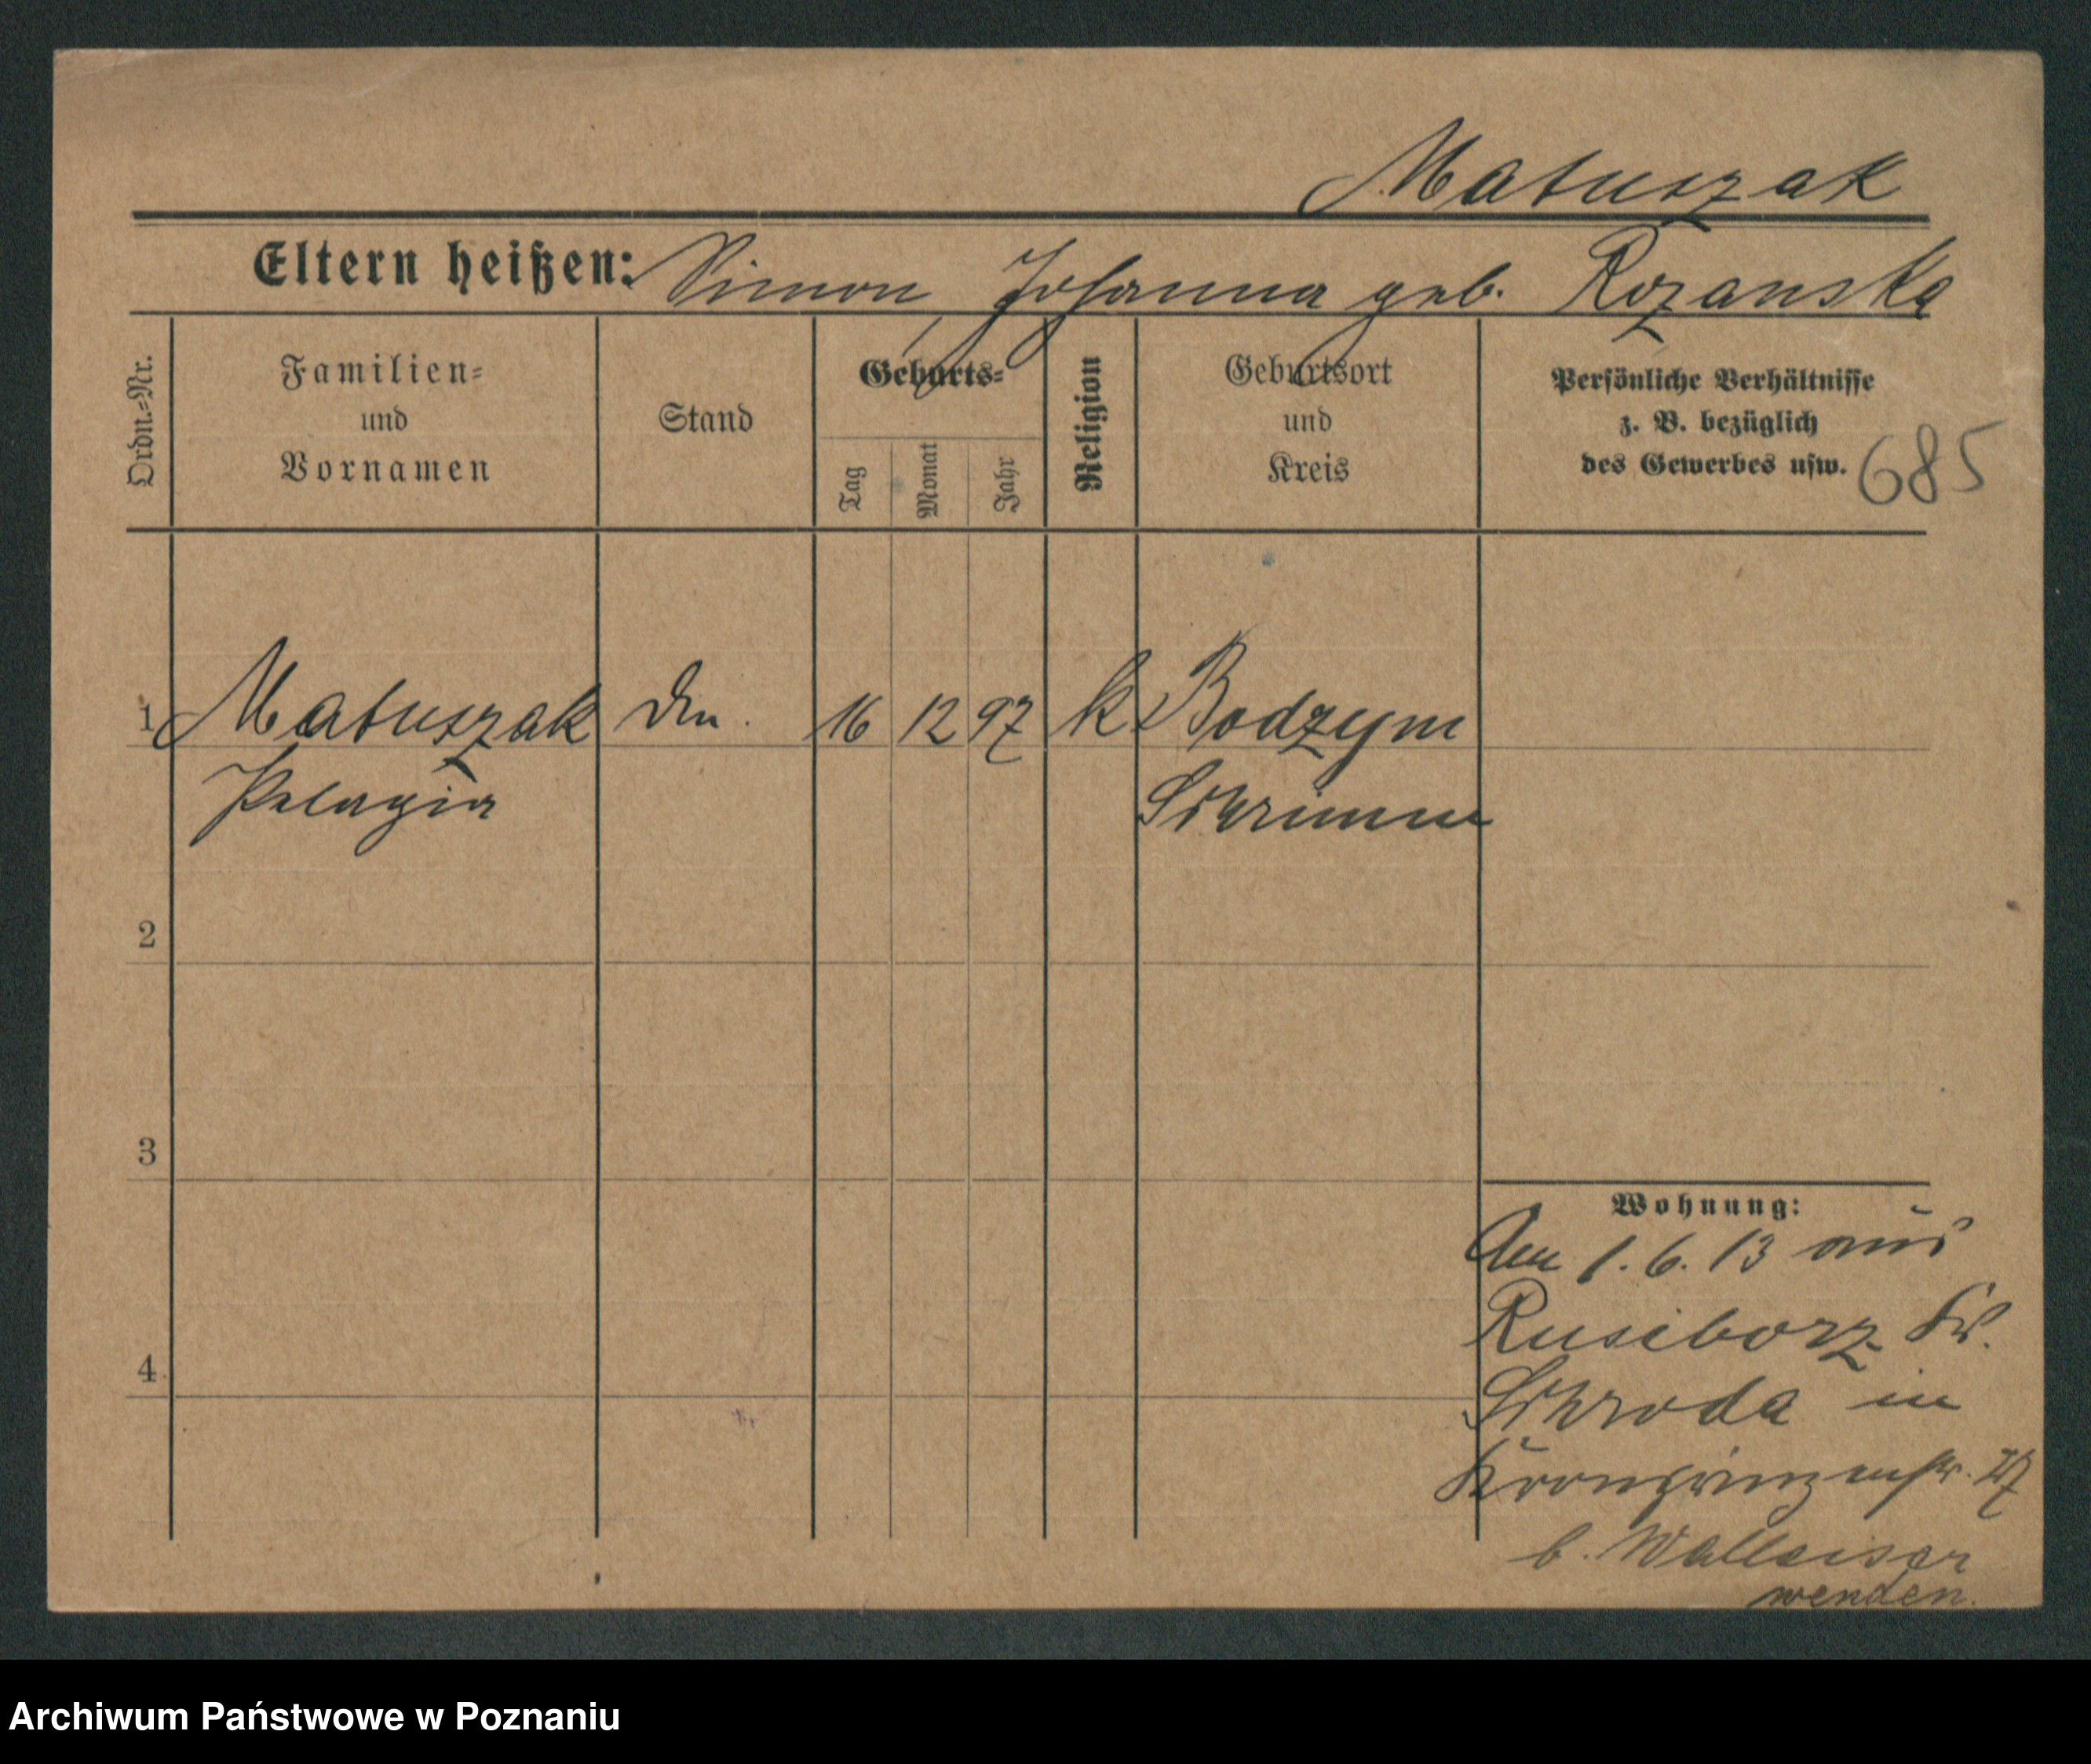 Matuszak
Eltern heißen: Simon Johanna geb. Rozanska
Ordn.-Nr.
Familien-
und
Vornamen
Stand
Geburts-
Tag
Monat
Jahr
Religion
Geburtsort
und
Kreis
Persönliche Verhältnisse
z. B. bezüglich
des Gewerbes usw.
685
1 Matuszak 16 12 97 k Bodzym
Pelagia Schrimm
2
3
4
Wohnung:
Am 1. 6. 13 aus
Rusiborz Kr.
Schroda in
Kronprinzenstr. 27
b. Walleiser
wenden.
Archiwum Państwowe w Poznaniu